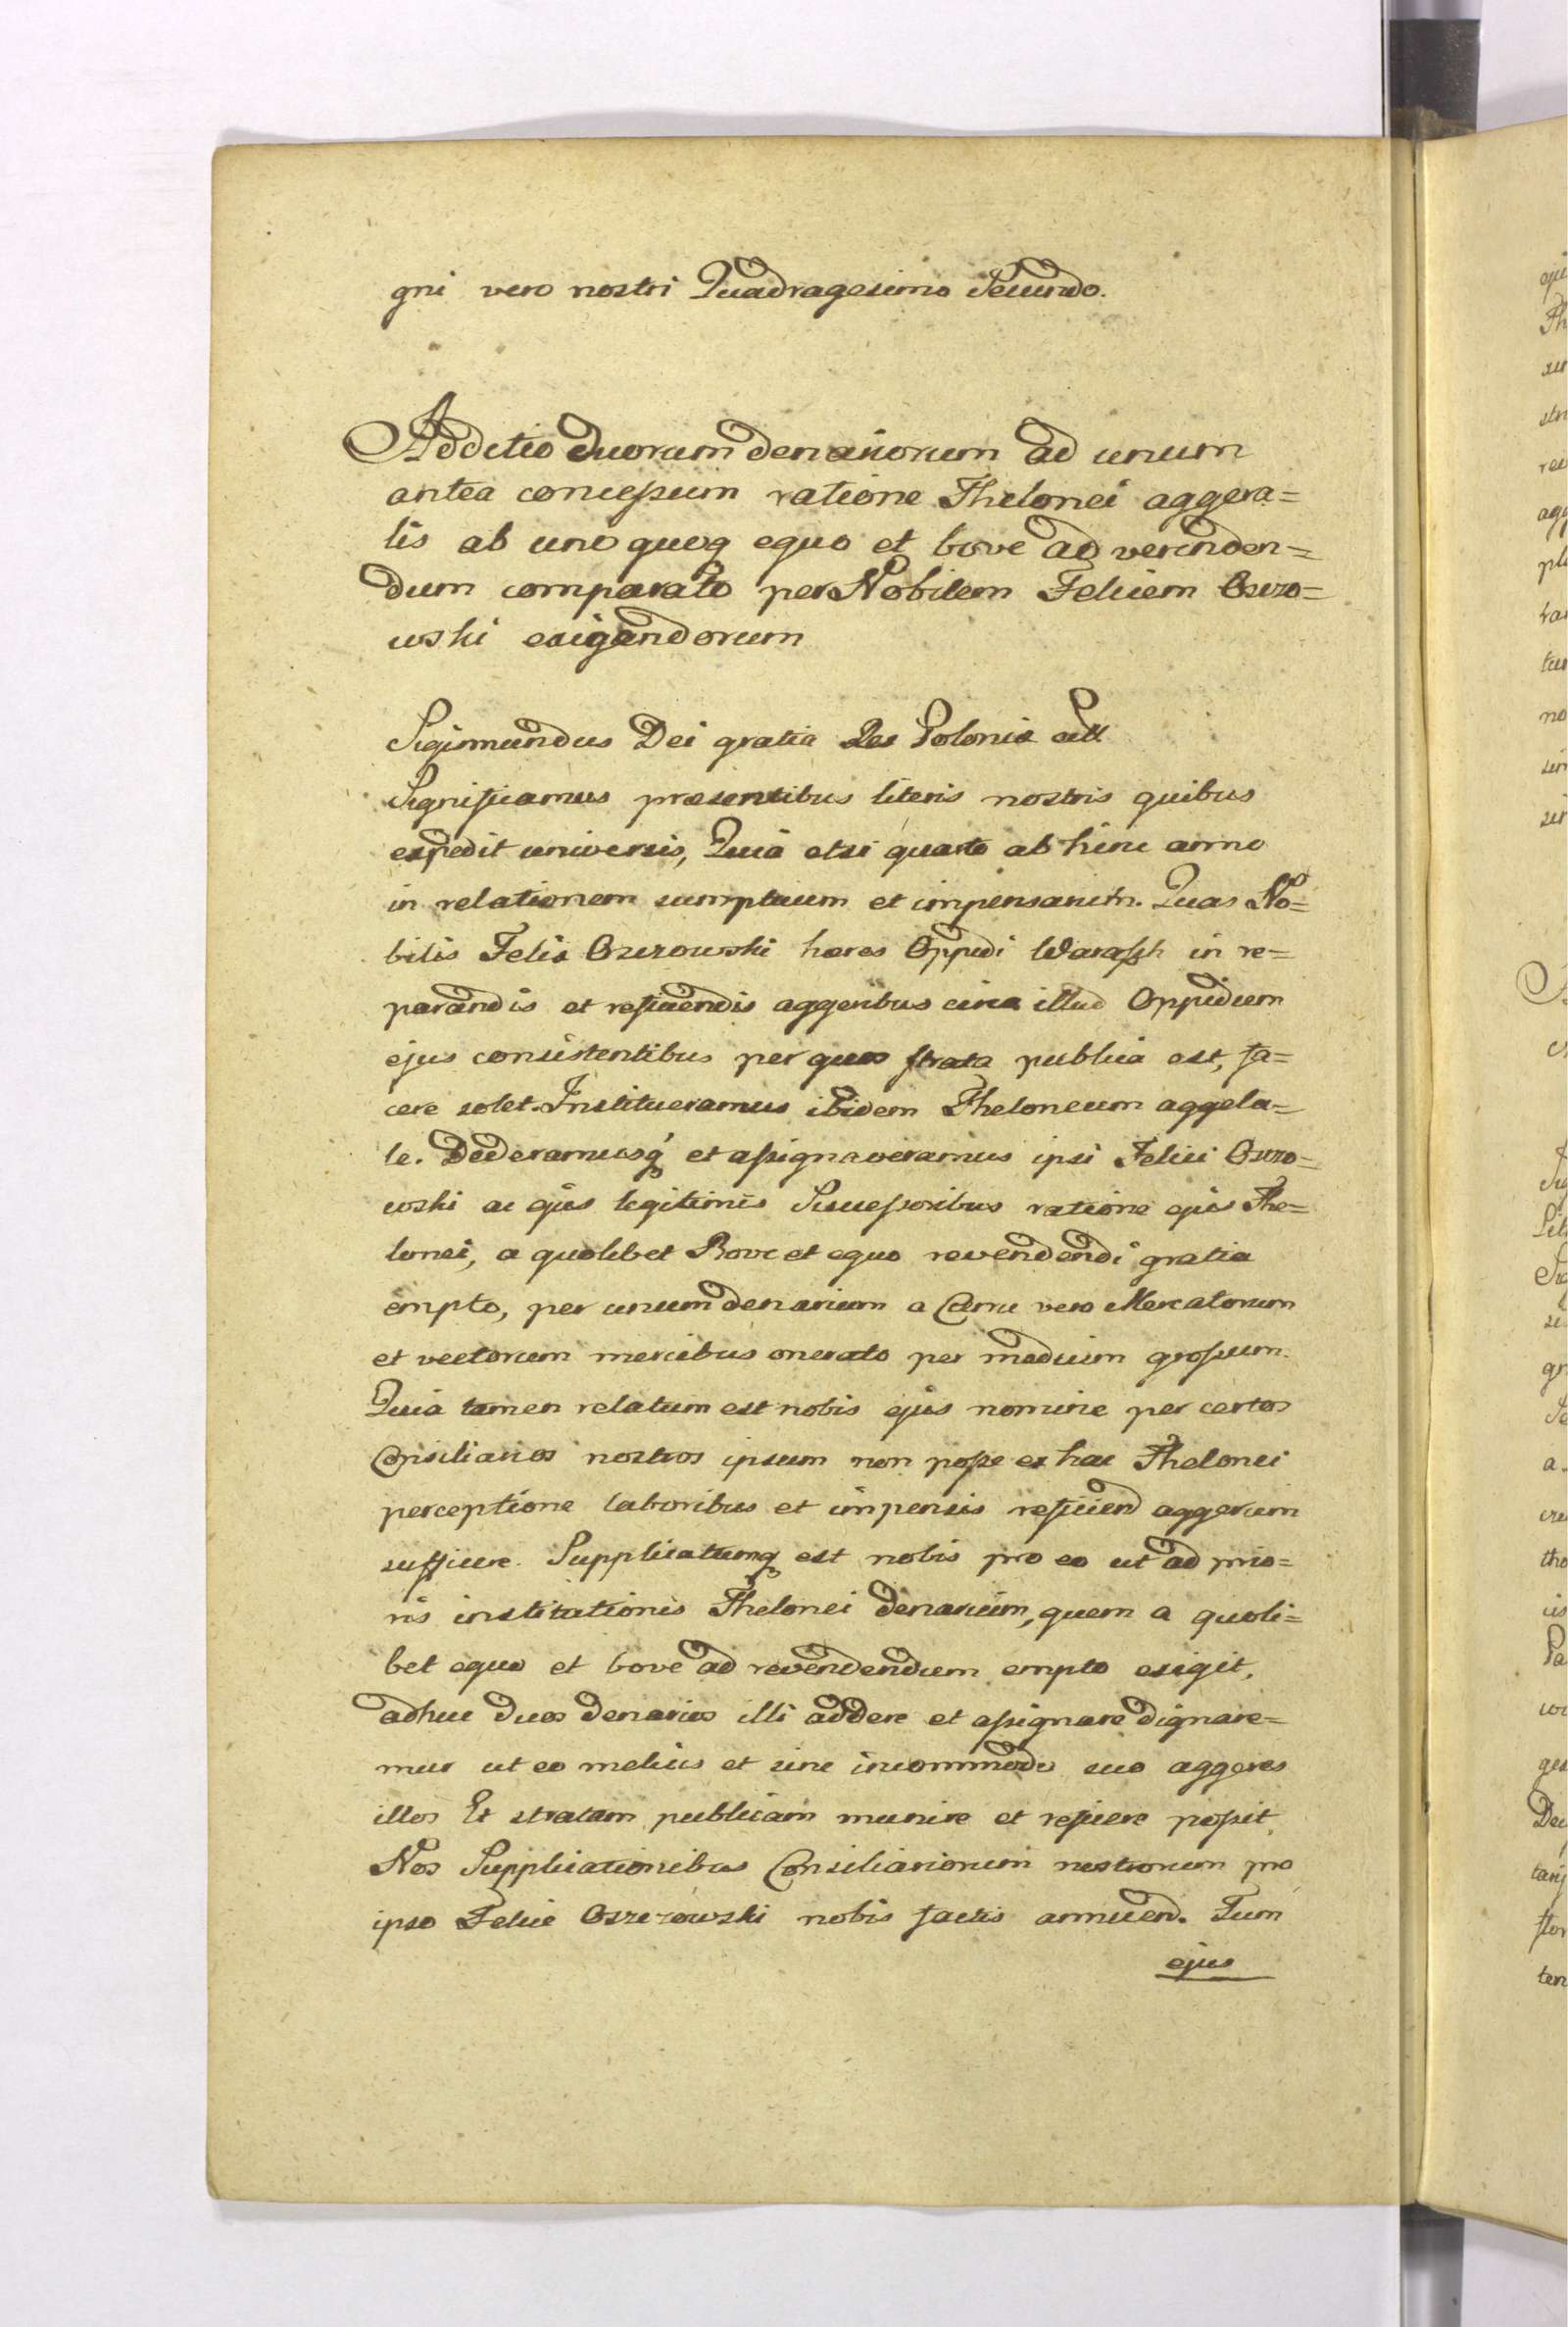 gni vero nostri Quadragesimo Secundo.
Additio duorum denariorum ad unum
antea concessum ratione Thelonei aggera=
lis ab uno quoq equo et bove ad verenden=
dum comparato per Nobilem Felicem Oszro=
wski exigendorum
Sigismundus Dei gratia Rex Poloniæ
Significamus præsentibus literis nostris quibus
expedit universis, Quia etsi quarto ab hinc anno
in relationem sumptuum et impensarum. Quas No=
bilis Felix Oszrowski hæres Oppidi in re=
parandis et reficiendis aggeribus circa illud Oppidum
ejus consistentibus per quos strata publica est, fa=
cere solet. Institueramus ibidem Theloneum aggela=
le. Dederamusq et assignaveramus ipsi Felici Oszro=
wski ac ejus legitimis Successoribus ratione ejus The=
lonei, a quolibet Bove et equo revendendi gratia
empto, per unum denarium a Curru vero Mercatorum
et vectorum mercibus onerato per medium grossum.
Quia tamen relatum est nobis ejus nomine per certos
Consiliarios nostros ipsum non posse ex hac Thelonei
perceptione laboribus et impensis reficiend aggerum
sufficere. Supplicatumq est nobis pro eo ut ad prio=
ris institutionis Thelonei denarium, quem a quoli=
bet equo et bove ad revendendum empto exigit,
adhuc duos denarios illi addere et assignare dignare=
mur ut eo melius et sine incommodo suo aggeres
illos Et stratam publicam munire et reficere possit.
Nos Supplicationibus Consiliariorum nostrorum pro
ipso Felice Oszrzowski nobis factis annuend. Tum
ejus